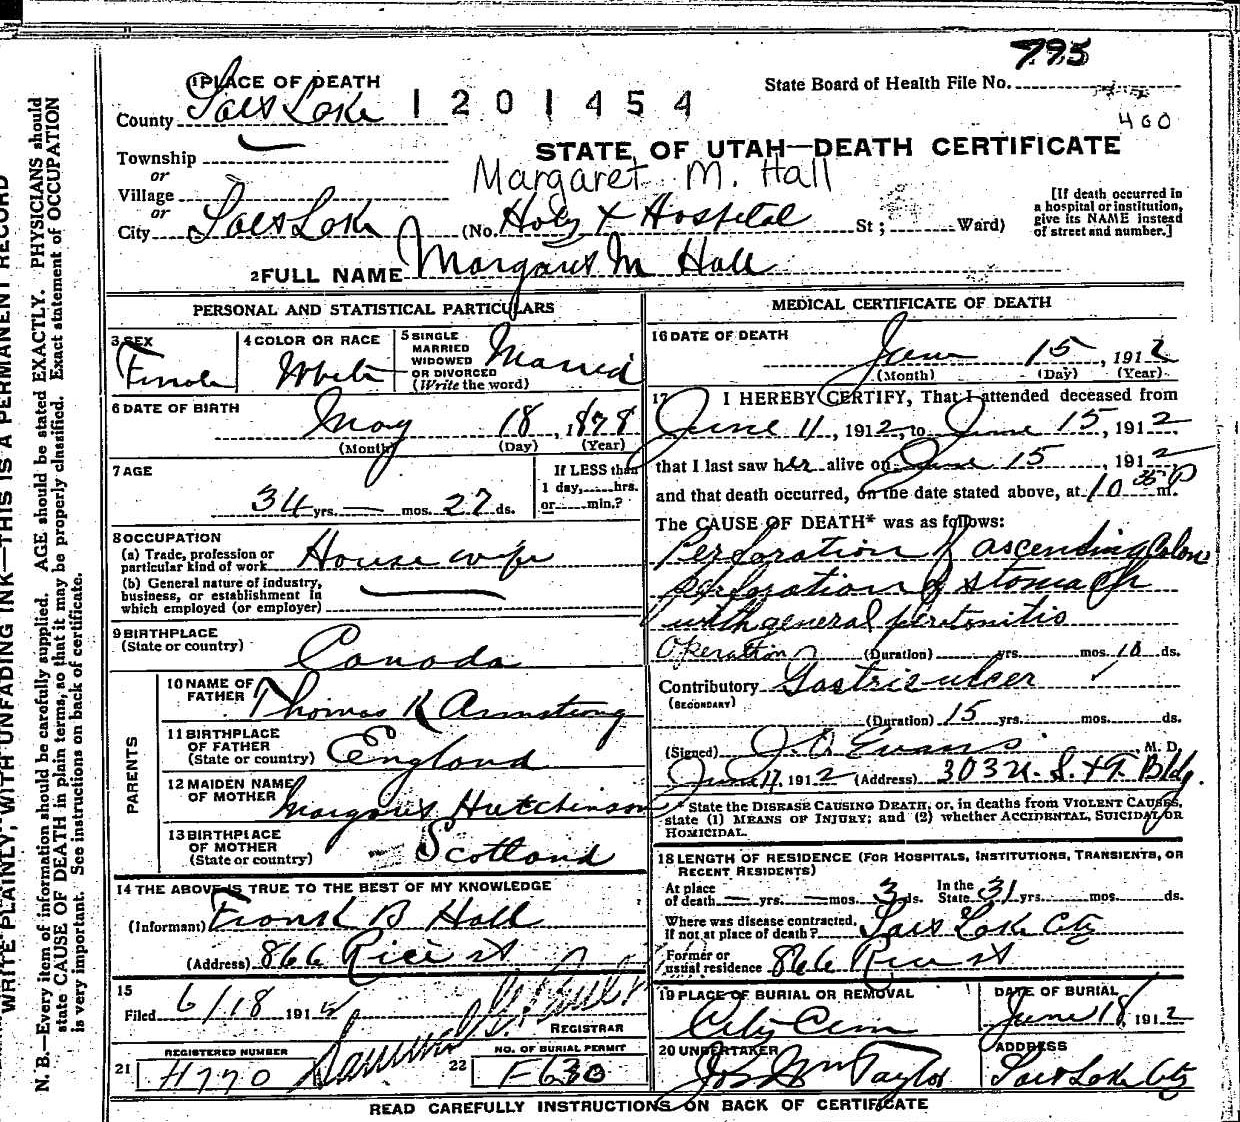 795
1 PLACE OF DEATH
State Board of Health File No.
County Salt Lake 1201454
460
STATE OF UTAH—DEATH CERTIFICATE
Township
or
Margaret M. Hall
Village
or
City Salt Lake (No. Holy X Hospital St; Ward)
[If death occurred in
a hospital or institution,
give its NAME instead
of street and number.]
2 FULL NAME Margaret M Hall
PERSONAL AND STATISTICAL PARTICULARS
3 SEX Female
4 COLOR OR RACE White
5 SINGLE
MARRIED
WIDOWED
OR DIVORCED
(Write the word) Married
6 DATE OF BIRTH May 18, 1878
(Month) (Day) (Year)
7 AGE
34 yrs. — mos. 27 ds.
If LESS than
1 day, hrs.
or min.?
8 OCCUPATION
(a) Trade, profession or
particular kind of work House wife
(b) General nature of industry,
business, or establishment in
which employed (or employer)
9 BIRTHPLACE
(State or country) Canada
PARENTS
10 NAME OF
FATHER Thomas K Armstrong
11 BIRTHPLACE
OF FATHER
(State or country) England
12 MAIDEN NAME
OF MOTHER Margaret Hutchinson
13 BIRTHPLACE
OF MOTHER
(State or country) Scotland
14 THE ABOVE IS TRUE TO THE BEST OF MY KNOWLEDGE
(Informant) Frank B Hall
(Address) 866 Rice st
15
Filed 6/18 1912
REGISTRAR
REGISTERED NUMBER
21 H770
NO. OF BURIAL PERMIT
22 F630
MEDICAL CERTIFICATE OF DEATH
16 DATE OF DEATH
June 15, 1912
(Month) (Day) (Year)
17 I HEREBY CERTIFY, That I attended deceased from
June 11, 1912, to June 15, 1912
that I last saw her alive on June 15, 1912
and that death occurred, on the date stated above, at 10 35 P m.
The CAUSE OF DEATH* was as follows:
Perforation of ascending Colon
perforation of stomach
with general peritonitis
Operation (Duration) yrs. mos. 10 ds.
Contributory Gastric ulcer
(SECONDARY)
(Duration) 15 yrs. mos. ds.
(Signed) J. O. Evans M. D.
June 17, 1912 (Address) 303 U. S. & T. Bldg.
* State the DISEASE CAUSING DEATH, or, in deaths from VIOLENT CAUSES,
state (1) MEANS OF INJURY; and (2) whether ACCIDENTAL, SUICIDAL OR
HOMICIDAL.
18 LENGTH OF RESIDENCE (FOR HOSPITALS, INSTITUTIONS, TRANSIENTS, OR
RECENT RESIDENTS)
At place
of death — yrs. — mos. 3 ds. In the
State 31 yrs. mos. ds.
Where was disease contracted,
If not at place of death? Salt Lake City
Former or
usual residence 866 Rice st
19 PLACE OF BURIAL OR REMOVAL
City Cem
DATE OF BURIAL
June 18, 1912
20 UNDERTAKER
Jos Wm Taylor
ADDRESS
Salt Lake City
READ CAREFULLY INSTRUCTIONS ON BACK OF CERTIFICATE
WRITE PLAINLY, WITH UNFADING INK—THIS IS A PERMANENT RECORD
N. B.—Every item of information should be carefully supplied. AGE should be stated EXACTLY. PHYSICIANS should
state CAUSE OF DEATH in plain terms, so that it may be properly classified. Exact statement of OCCUPATION
is very important. See instructions on back of certificate.